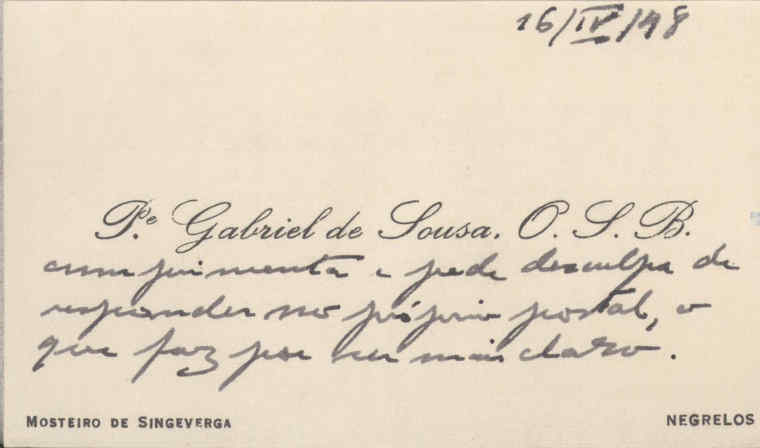 16/IV/48
P.e Gabriel de Sousa, O. S. B.
cumprimenta e pede desculpa de
responder no próprio postal, o
que faz por ser mais claro.
MOSTEIRO DE SINGEVERGA
NEGRELOS